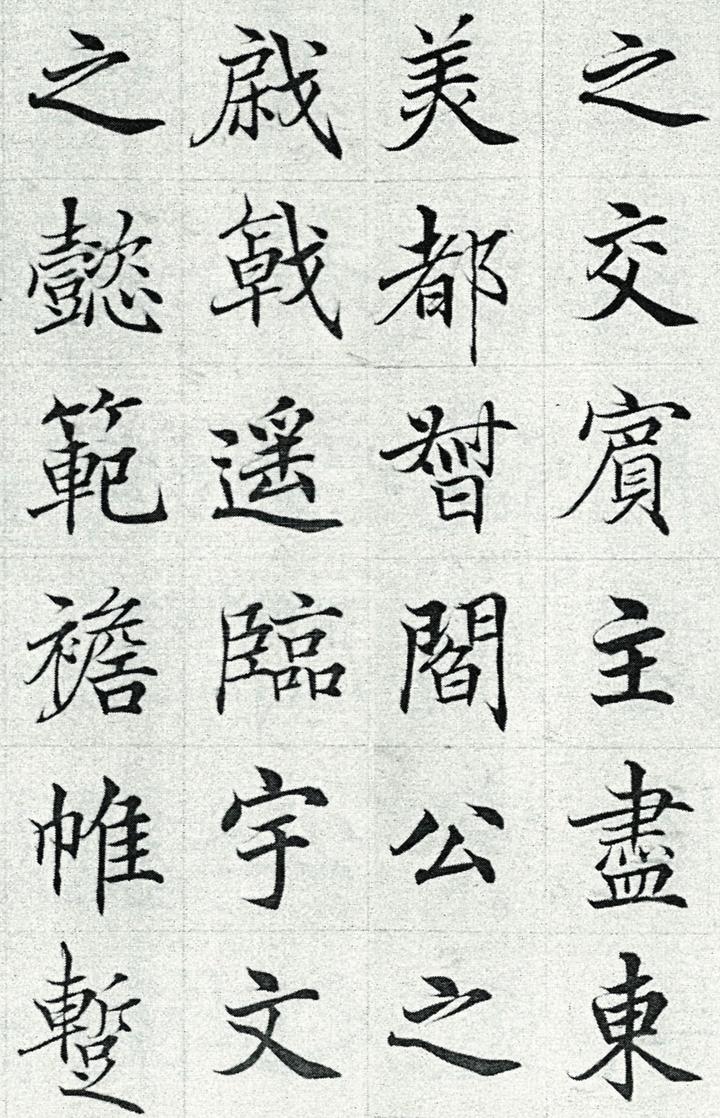 之交賓主盡東
美都督閻公之
棨戟遥臨宇文
之懿範襜帷蹔